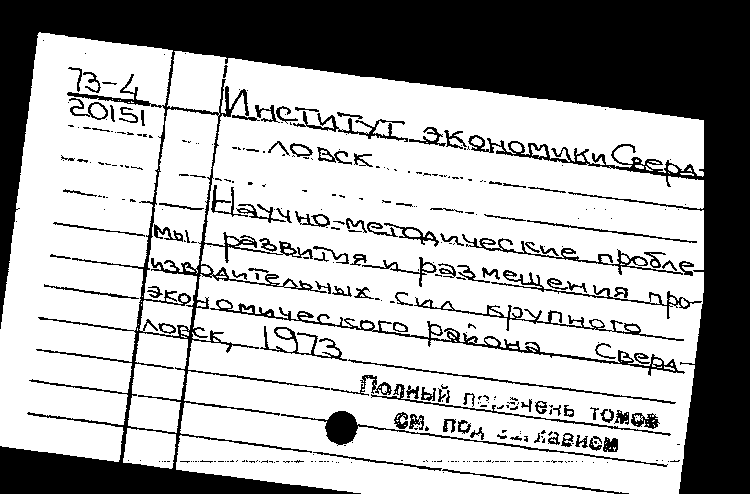 73-4
20151
Институт экономики Сверд-
ловск
Научно-методические пробле-
мы развития и размещения про-
изводительных сил крупного
экономического района. Сверд-
ловск, 1973
Полный перечень томов
см. под заглавием